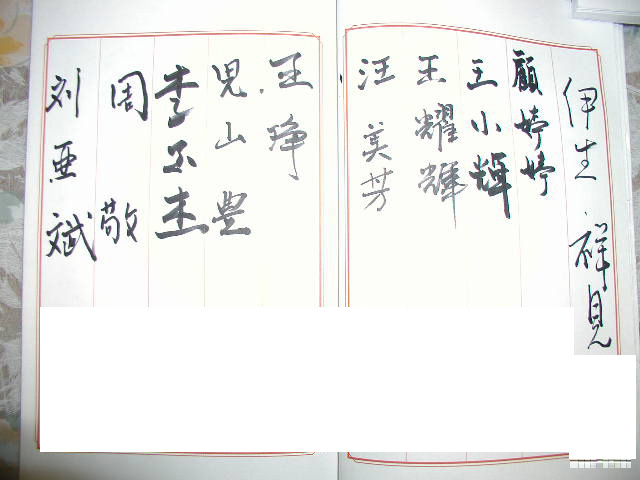 伊生.祥見
顧婷婷
王小輝
王耀輝
汪美芳
王琤
児山豊
周敬
刘亜斌